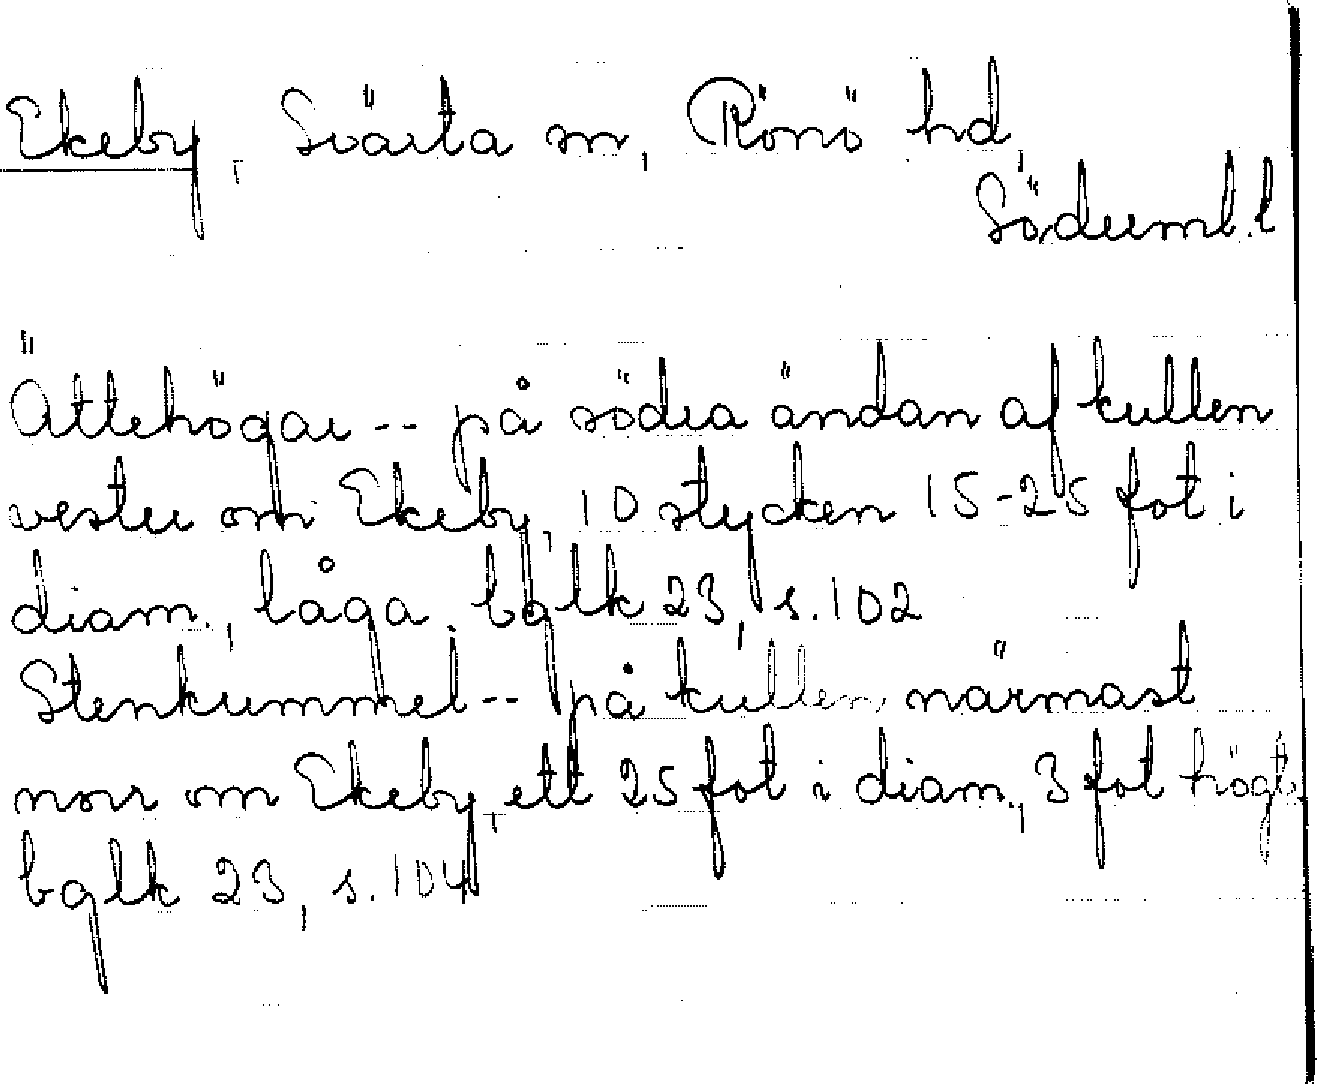 Ekeby, Svärta sn, Rönö hd,
Söderml. l
Ättehögar -- på södra ändan af kullen
vester om Ekeby, 10 stycken 15-25 fot i
diam., låga. bglk 23, s. 102
Stenkummel -- på kullen närmast
norr om Ekeby, ett 25 fot i diam., 3 fot högt.
bglk 23, s. 104